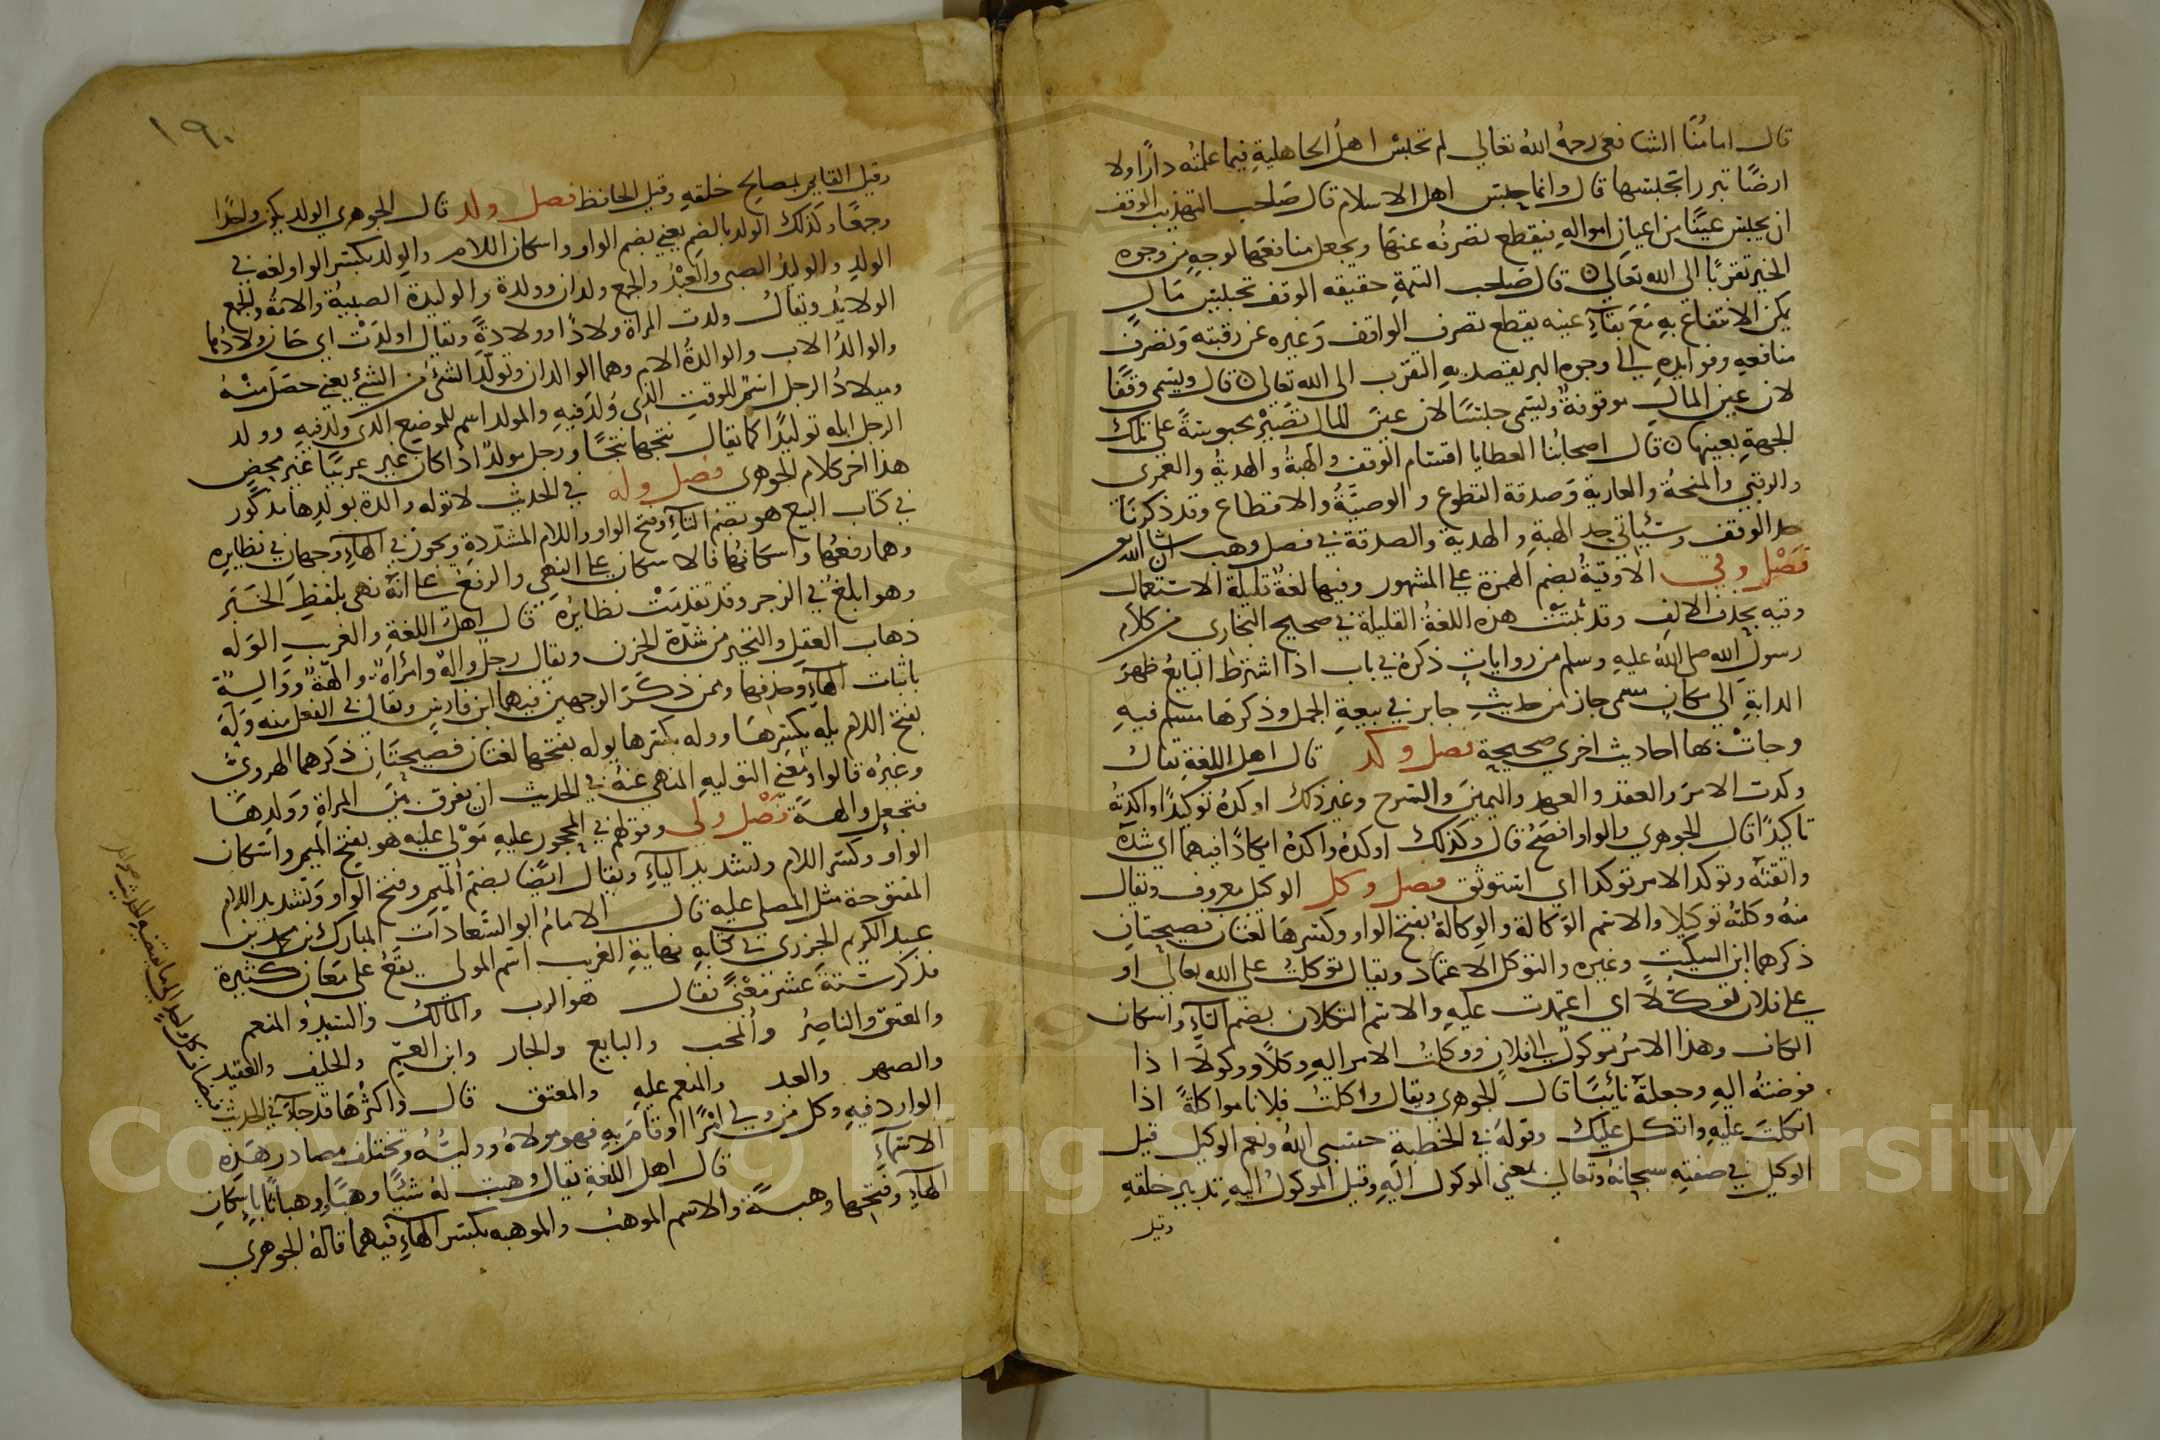 قال امامنا الشافعي رحمه الله تعالى لم تحبس اهل الجاهلية فيما علمته دارا ولا
ارضا تبررا بحبسها قال وانما حبس اهل الاسلام قال صاحب التهذيب الوقف
ان يحبس عينا من اعيان امواله فيقطع تصرفه عنها ويجعل منافعها لوجه من وجوه
الخير تقربا الى الله تعالى ه قال صاحب التتمة حقيقه الوقف تحبيس مال
يمكن الانتفاع به مع بقآء عينه يقطع تصرف الواقف وغيره عن رقبته وتصرف
منافعه وفوايده الى وجوه البر يقصد به التقرب الى الله تعالى ه قال ويسمى وقفا
لان عين المال موقوفة ويسمى حبسا لان عين المال تصير محبوسة على تلك
الجهة بعينها ه قال اصحابنا العطايا اقسام الوقف والهبة والهدية والعمرى
والرقبى والمنحة والعارية وصدقة التطوع والوصية والاقطاع وقد ذكرنا
حد الوقف وسياتي حد الهبة والهدية والصدقة في فصل وهب ان شا الله تع
فصل وقي الاوقية بضم الهمزة على المشهور وفيها لغة قليلة الاستعمال
وقيه بحذف الالف وقد ثبتت هذه اللغة القليلة في صحيح البخاري من كلام
رسول الله صلى الله عليه وسلم من روايات ذكره في باب اذا اشترط البايع ظهر
الدابة الى مكان مسمى جاز من حديث جابر في بيعة الجمل وذكرها مسلم فيه
وجات بها احاديث اخرى صحيحة فصل وكد قال اهل اللغة يقال
وكدت الامر والعقد والعهد واليمين والسرج وغير ذلك اوكده توكيدا واكدته
تاكيدا قال الجوهري والواو افصح قال وكذلك اوكده واكده ايكادا فيهما اي شده
واثقته وتوكد الامر توكدا اي استوثق فصل وكل الوكيل معروف ويقال
منه وكلته توكيلا والاسم الوكالة والوكالة بفتح الواو وكسرها لغتان فصيحتان
ذكرهما ابن السكيت وغيره والتوكل الاعتماد ويقال توكلت على الله تعالى او
على فلان توكلا اي اعتمدت عليه والاسم التكلان بضم التآء واسكان
الكاف وهذا الامر موكول الى فلان ووكلت الامر اليه وكلا ووكولا اذا
فوضته اليه وجعلته نائبا قال الجوهري ويقال واكلت فلانا مواكلة اذا
اتكلت عليه واتكل عليك وقوله في الخطبة حسبي الله ونعم الوكيل قيل
الوكيل في صفته سبحانه وتعالى بمعنى الموكول اليه وقيل الموكول اليه تدبير خلقه
وقيل
١٩٠
وقيل القايم بمصالح خلقه وقيل الحافظ فصل ولد قال الجوهري الولد يكون واحدا
وجمعا وكذلك الولد بالضم يعني بضم الواو واسكان اللام والولد بكسر الواو لغه في
الولد والوليد الصبي والعبد والجمع ولدان وولدة والوليدة الصبية والامة والجمع
الولايد ويقال ولدت المراة ولادا وولادة ويقال اولدت اي حان ولادها
والوالد الاب والوالدة الام وهما الوالدان وتولد الشي من الشئ يعني حصل منه
وميلاد الرجل اسم للوقت الذي ولد فيه والمولد اسم للموضع الذي ولد فيه وولد
الرجل ابله توليدا كما يقال نتجها نتجا ورجل مولد اذا كان غير عربيا غير محض
هذا اخر كلام الجوهرى فصل وله في الحديث لا توله والدة بولدها مذكور
في كتاب البيع هو بضم التآء وفتح الواو واللام المشددة ويجوز في الهآء وجهان في نظايره
وهما رفعها واسكانها فالاسكان على النهي والرفع على انه نهى بلفظ الخبر
وهو ابلغ في الزجر وقد تقدمت نظايره قال اهل اللغة والغريب الوله
ذهاب العقل والتحير من شدة الحزن ويقال رجل واله وامراة والهة ووالة
باثبات الهآء وحذفها وممن ذكر الوجهين فيهما ابن فارس ويقال في الفعل منه وله
بفتح اللام يله بكسرها ووله بكسرها يوله بفتحها لغتان فصيحتان ذكرهما الهروي
وغيره قالوا ومعنى التوليه المنهي عنه في الحديث ان يفرق بين المراة وولدها
فتجعل والهة فصل ولى وقولهم في المحجور عليه مولى عليه هو بفتح الميم واسكان
الواو وكسر اللام وتشديد اليآء ويقال ايضا بضم الميم وفتح الواو وتشديد اللام
المفتوحة مثل المصلى عليه قال الامام ابو السعادات المبارك بن محمد بن
عبد الكريم الجزري في كتابه نهاية الغريب اسم المولى يقع على معان كثيرة
فذكر ستة عشر معنى فقال هو الرب والمالك والسيد والمنعم
والمعتق والناصر والمحب والبايع والجار وابن العم والحليف والعقيد
والصهر والعبد والمنعم عليه والمعتق قال واكثرها قد جاء في الحديث
فيضاف كل واحد الى ما يقتضيه الحديث
الوارد فيه وكل من ولي امرا او قام به فهو مولاه ووليه وتختلف مصادر هذه
الاسمآء قال اهل اللغة يقال وهبت له شيئا وهبا ووهبا باسكان
الهآء وفتحها وهبة والاسم الموهب والموهبه بكسر الهآء فيهما قاله الجوهري
Copyright © King Saud University